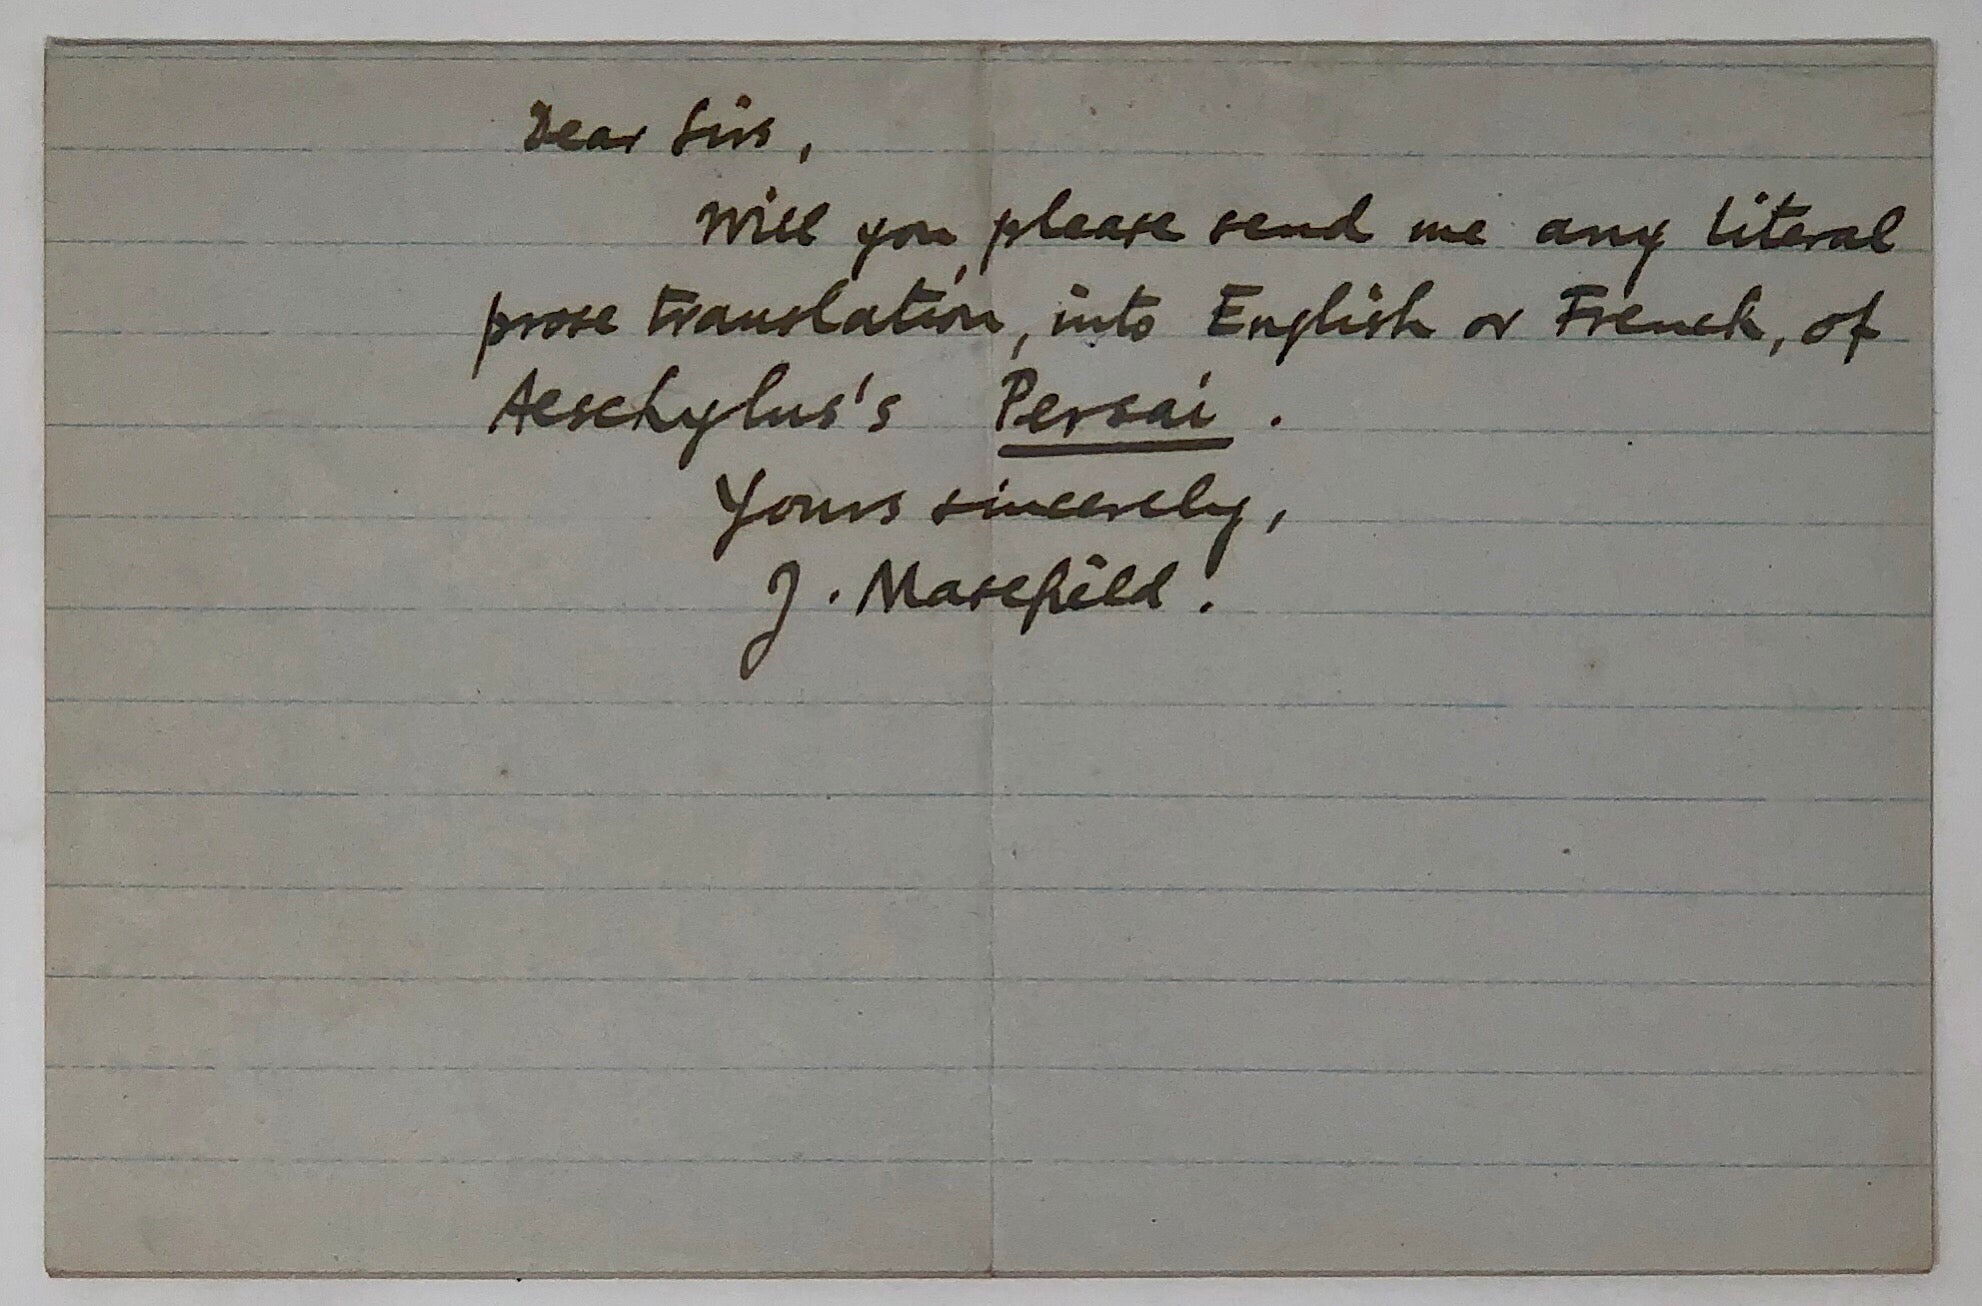 Dear Sirs,
Will you please send me any literal
prose translation, into English or French, of
Aeschylus's Persai.
Yours sincerely,
J. Masefield.